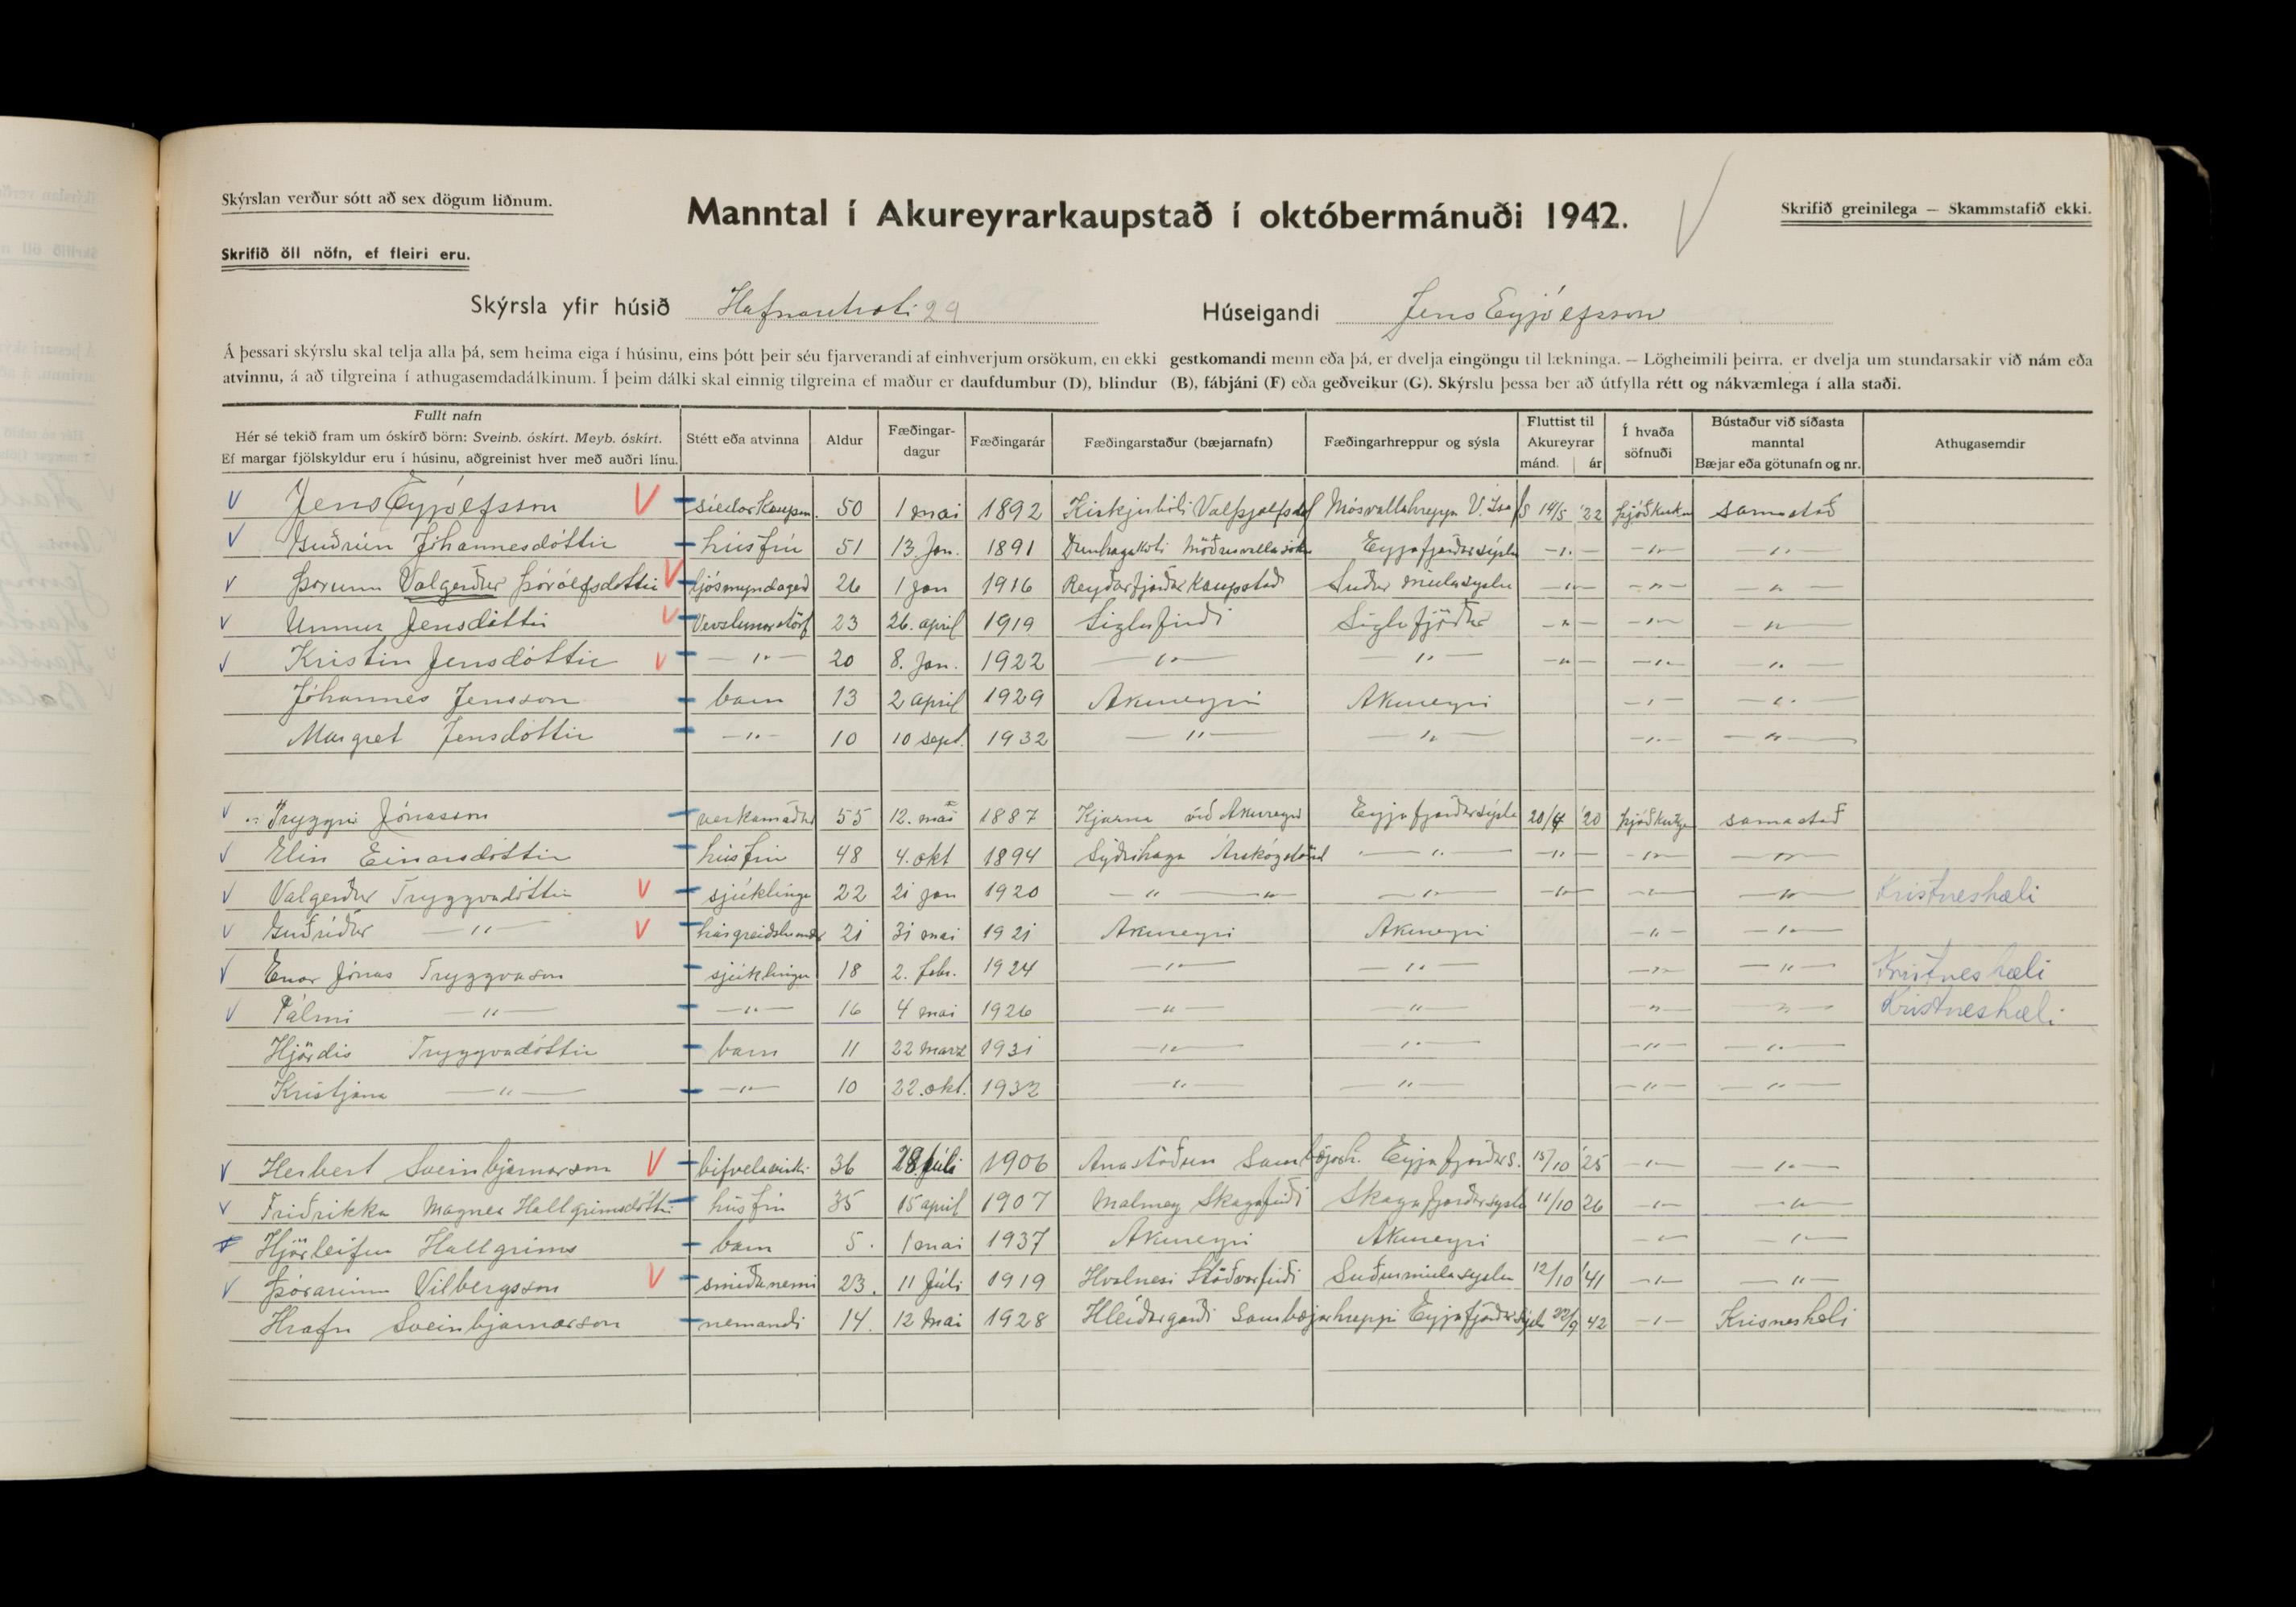 Skýrslan verður sótt að sex dögum liðnum.
Manntal í Akureyrarkaupstað í októbermánuði 1942.
Skrifið greinilega — Skammstafið ekki.
Skrifið öll nöfn, ef fleiri eru.
Skýrsla yfir húsið Hafnarstræti 29 Húseigandi Jens Eyjólfsson
Á þessari skýrslu skal telja alla þá, sem heima eiga í húsinu, eins þótt þeir séu fjarverandi af einhverjum orsökum, en ekki gestkomandi menn eða þá, er dvelja eingöngu til lækninga. — Lögheimili þeirra, er dvelja um stundarsakir við nám eða
atvinnu, á að tilgreina í athugasemdadálkinum. Í þeim dálki skal einnig tilgreina ef maður er daufdumbur (D), blindur (B), fábjáni (F) eða geðveikur (G). Skýrslu þessa ber að útfylla rétt og nákvæmlega í alla staði.
Fullt nafn
Hér sé tekið fram um óskírð börn: Sveinb. óskírt. Meyb. óskírt.
Ef margar fjölskyldur eru í húsinu, aðgreinist hver með auðri línu.
Stétt eða atvinna
Aldur
Fæðingar-
dagur
Fæðingarár
Fæðingarstaður (bæjarnafn)
Fæðingarhreppur og sýsla
Fluttist til
Akureyrar
mánd. ár
Í hvaða
söfnuði
Bústaður við síðasta
manntal
Bæjar eða götunafn og nr.
Athugasemdir
Jens Eyjólfsson 50 1 maí 1892 Kirkjubóli Mosvallahrepp V. Ísafs 14/5 '22 þjóðkirkju samastað
Guðrún Jóhannesdóttir húsfrú 51 13 Jan. 1891 Eyjafjarðarsýslu —"— —"— —"—
Þorunn Valgerður Þórólfsdóttir 26 1 jan 1916 Reyðarfjarðar kaupstað Suður múlasýslu —"— —"— —"—
Unnur Jensdóttir Verslunarstörf 23 26. apríl 1919 Siglufirði Siglufjörður —"— —"— —"—
Kristín Jensdóttir —"— 20 8. Jan. 1922 —"— —"— —"— —"— —"—
Jóhannes Jensson barn 13 2 apríl 1929 Akureyri Akureyri —"— —"—
Margret Jensdóttir —"— 10 10 sept. 1932 —"— —"— —"— —"—
Tryggvi Jónasson verkamaður 55 12. maí 1887 Kjarna við Akureyri Eyjafjarðarsýslu 20/4 '20 þjóðkirkju samastað
Elin Einarsdóttir húsfrú 48 4. okt 1894 Syðrihaga Árskógströnd —"— —"— —"— —"—
Valgerður Tryggvadóttir sjúklingur 22 21 jan 1920 —"— —"— —"— —"— —"— —"— Kristneshæli
Guðríður —"— 21 31 maí 1921 Akureyri Akureyri —"— —"—
Einar Jónas Tryggvason sjúklingur 18 2. febr. 1924 —"— —"— —"— —"— Kristneshæli
Pálmi —"— —"— 16 4 maí 1926 —"— —"— —"— —"— Kristneshæli
Hjördis Tryggvadóttir barn 11 22 marz 1931 —"— —"— —"— —"—
Kristjana —"— —"— 10 22. okt. 1932 —"— —"— —"— —"—
Herbert Sveinbjarnarson bifvélavirki 36 28 júli 1906 Eyjafjarðars. 15/10 '25 —"— —"—
Friðrikka Magnea Hallgrimsdóttir húsfrú 35 15 apríl 1907 Malmey Skagafirði Skagafjarðarsýslu 11/10 26 —"— —"—
Hjörleifur Hallgrims barn 5. 1 maí 1937 Akureyri Akureyri —"— —"—
Þórarinn Vilbergsson smíðanemi 23. 11 Júli 1919 Hvalnesi Stöðvarfirði Suðurmúlasýslu 12/10 '41 —"— —"—
Hrafn Sveinbjarnarson nemandi 14. 12 Maí 1928 Hleiðargarði Saurbæjarhreppi Eyjafjarðarsýslu 22/9 42 —"— Krisneshæli